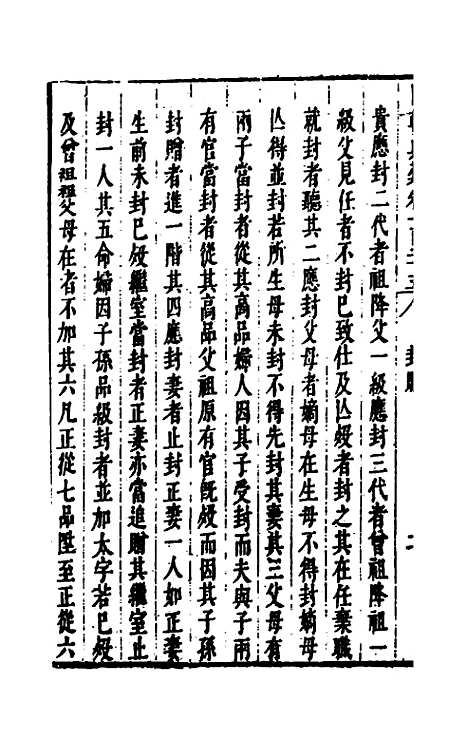 貴應封二代者祖降父一級應封三代者曾祖降祖一
級父見任者不封已致仕及亾歿者封之其在任棄職
就封者聽其二應封父母者嫡母在生母不得封嫡母
亾得並封若所生母未封不得先封其妻其三父母有
兩子當封者從其高品婦人因其子受封而夫與子兩
有官當封者從其高品父祖原有官既歿而因其子孫
封贈者進一階其四應封妻者止封正妻一人如正妻
生前未封已歿繼室當封者正妻亦當追贈其繼室止
封一人其五命婦因子孫品級封者並加太字若已歿
及曾祖祖父母在者不加其六凡正從七品陞至正從六